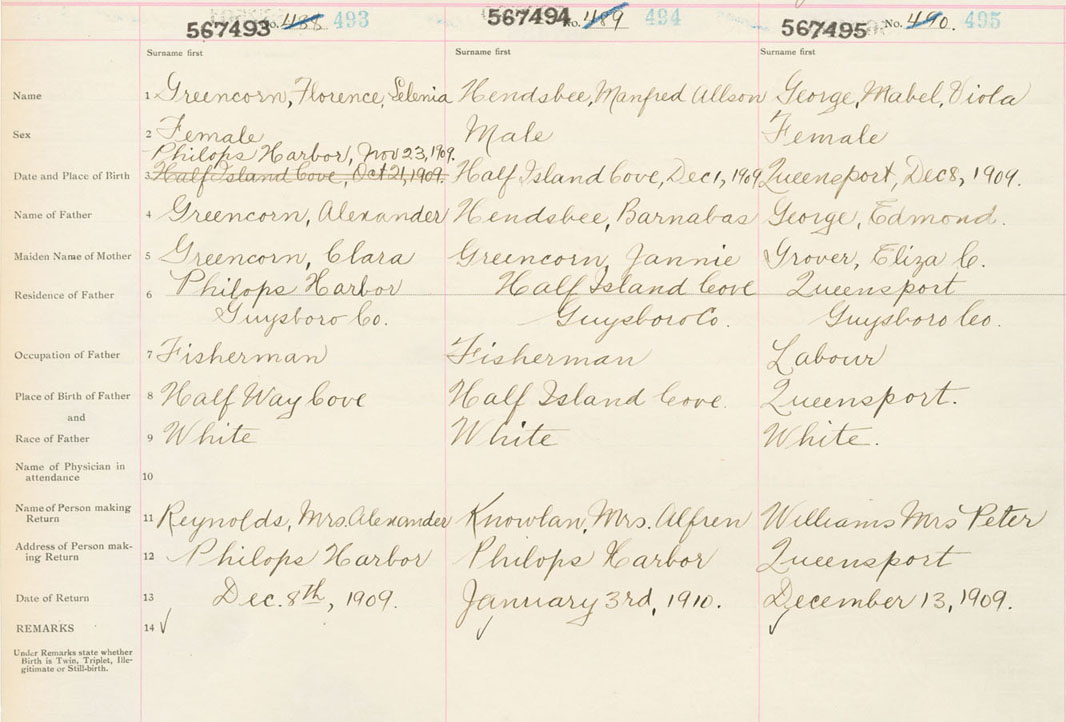 567493 No. 488 493 567494 No. 489 494 567495 No. 490. 495
Surname first Surname first Surname first
Name 1 Greencorn, Florence, Selenia Hendsbee, Manfred Allson George, Mabel, Viola
Sex 2 Female Male Female
Philops Harbor, Nov 23, 1909.
Date and Place of Birth 3 Half Island Cove, Oct 21, 1909. Half Island Cove, Dec 1, 1909 Queensport, Dec 8, 1909.
Name of Father 4 Greencorn, Alexander Hendsbee, Barnabas George, Edmond.
Maiden Name of Mother 5 Greencorn, Clara Greencorn, Jannie Grover, Eliza C.
Residence of Father 6 Philops Harbor Half Island Cove Queensport
Guysboro Co. Guysboro Co. Guysboro Co.
Occupation of Father 7 Fisherman Fisherman Labour
Place of Birth of Father 8 Half Way Cove Half Island Cove. Queensport.
and
Race of Father 9 White White White.
Name of Physician in
attendance 10
Name of Person making
Return 11 Reynolds, Mrs. Alexander Knowlan, Mrs. Alfren Williams Mrs Peter
Address of Person mak-
ing Return 12 Philops Harbor Philops Harbor Queensport
Date of Return 13 Dec. 8th, 1909. January 3rd, 1910. December 13, 1909.
REMARKS 14
Under Remarks state whether
Birth is Twin, Triplet, Ille-
gitimate or Still-birth.